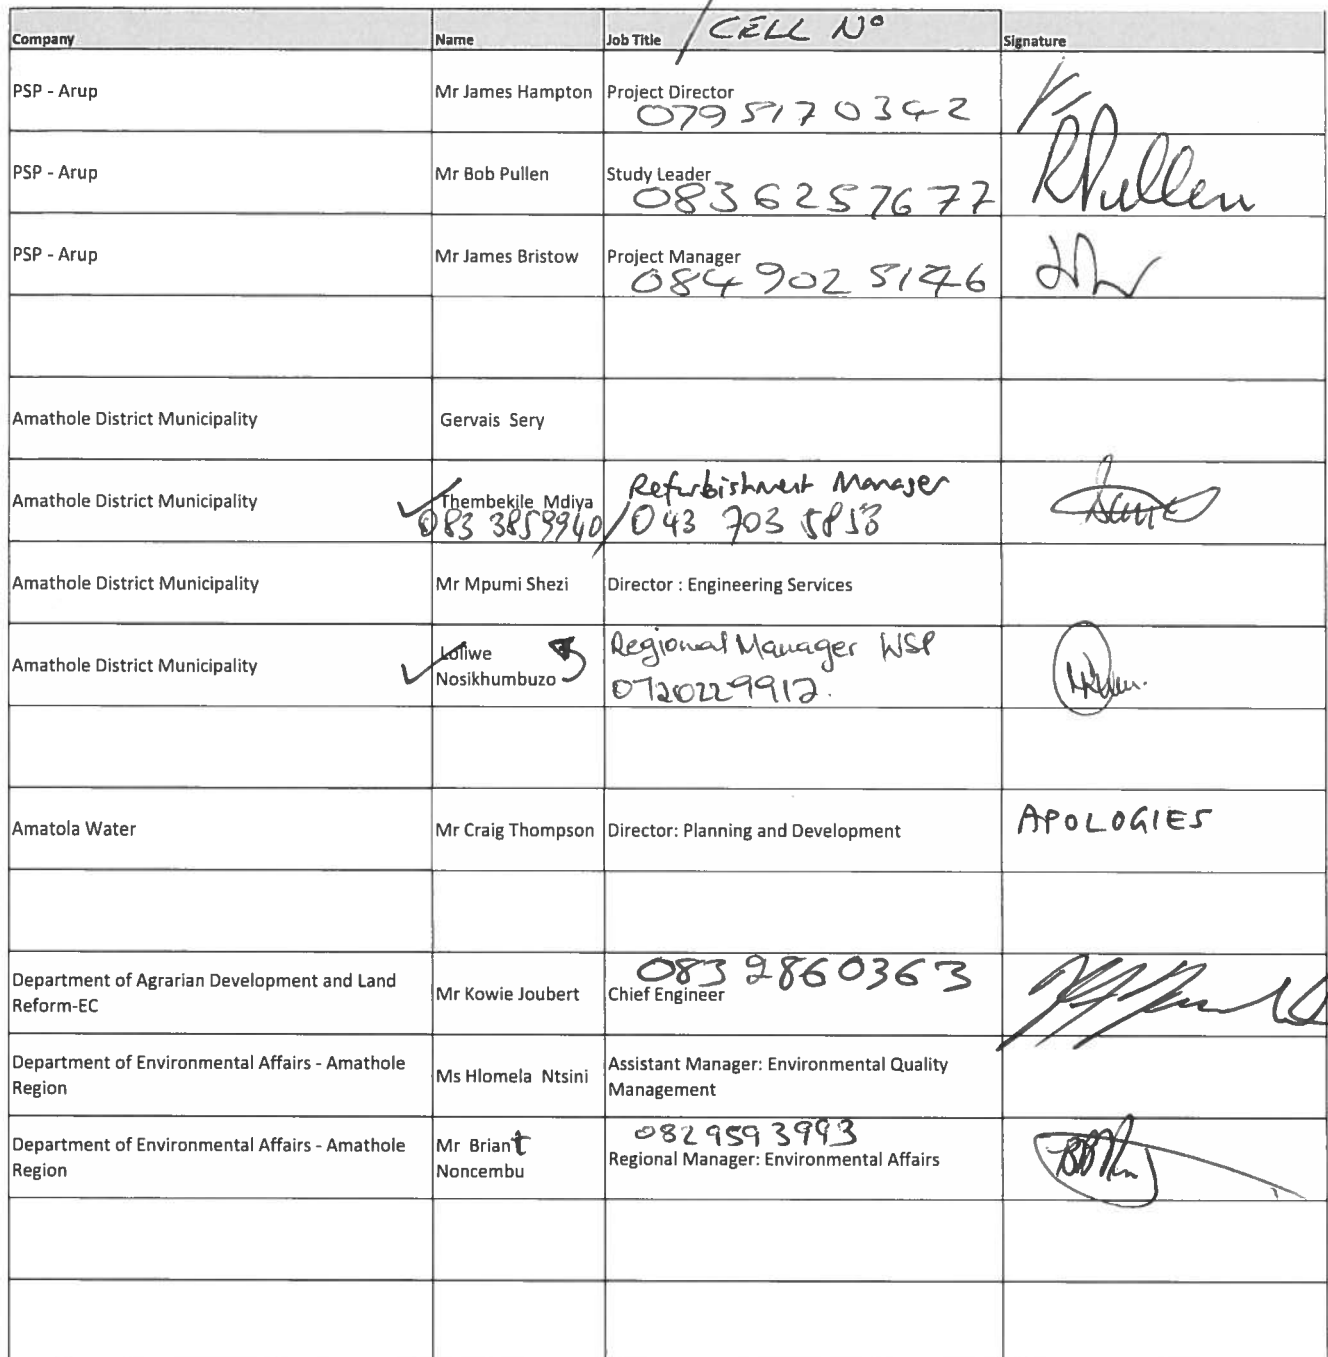 Company Name Job Title / CELL Nº Signature
PSP - Arup Mr James Hampton Project Director
079 517 0342
PSP - Arup Mr Bob Pullen Study Leader RPullen
083 625 7677
PSP - Arup Mr James Bristow Project Manager
084 902 5146
Amathole District Municipality Gervais Sery
Refurbishment Manager
Amathole District Municipality Thembekile Mdiya
083 3859940 / 043 703 5858
Amathole District Municipality Mr Mpumi Shezi Director : Engineering Services
Regional Manager WSP
Amathole District Municipality Loliwe
Nosikhumbuzo 0720229912.
Amatola Water Mr Craig Thompson Director: Planning and Development APOLOGIES
083 2860363
Department of Agrarian Development and Land
Reform-EC Mr Kowie Joubert Chief Engineer
Department of Environmental Affairs - Amathole
Region Ms Hlomela Ntsini Assistant Manager: Environmental Quality
Management
0829593993
Department of Environmental Affairs - Amathole
Region Mr Briant
Noncembu Regional Manager: Environmental Affairs